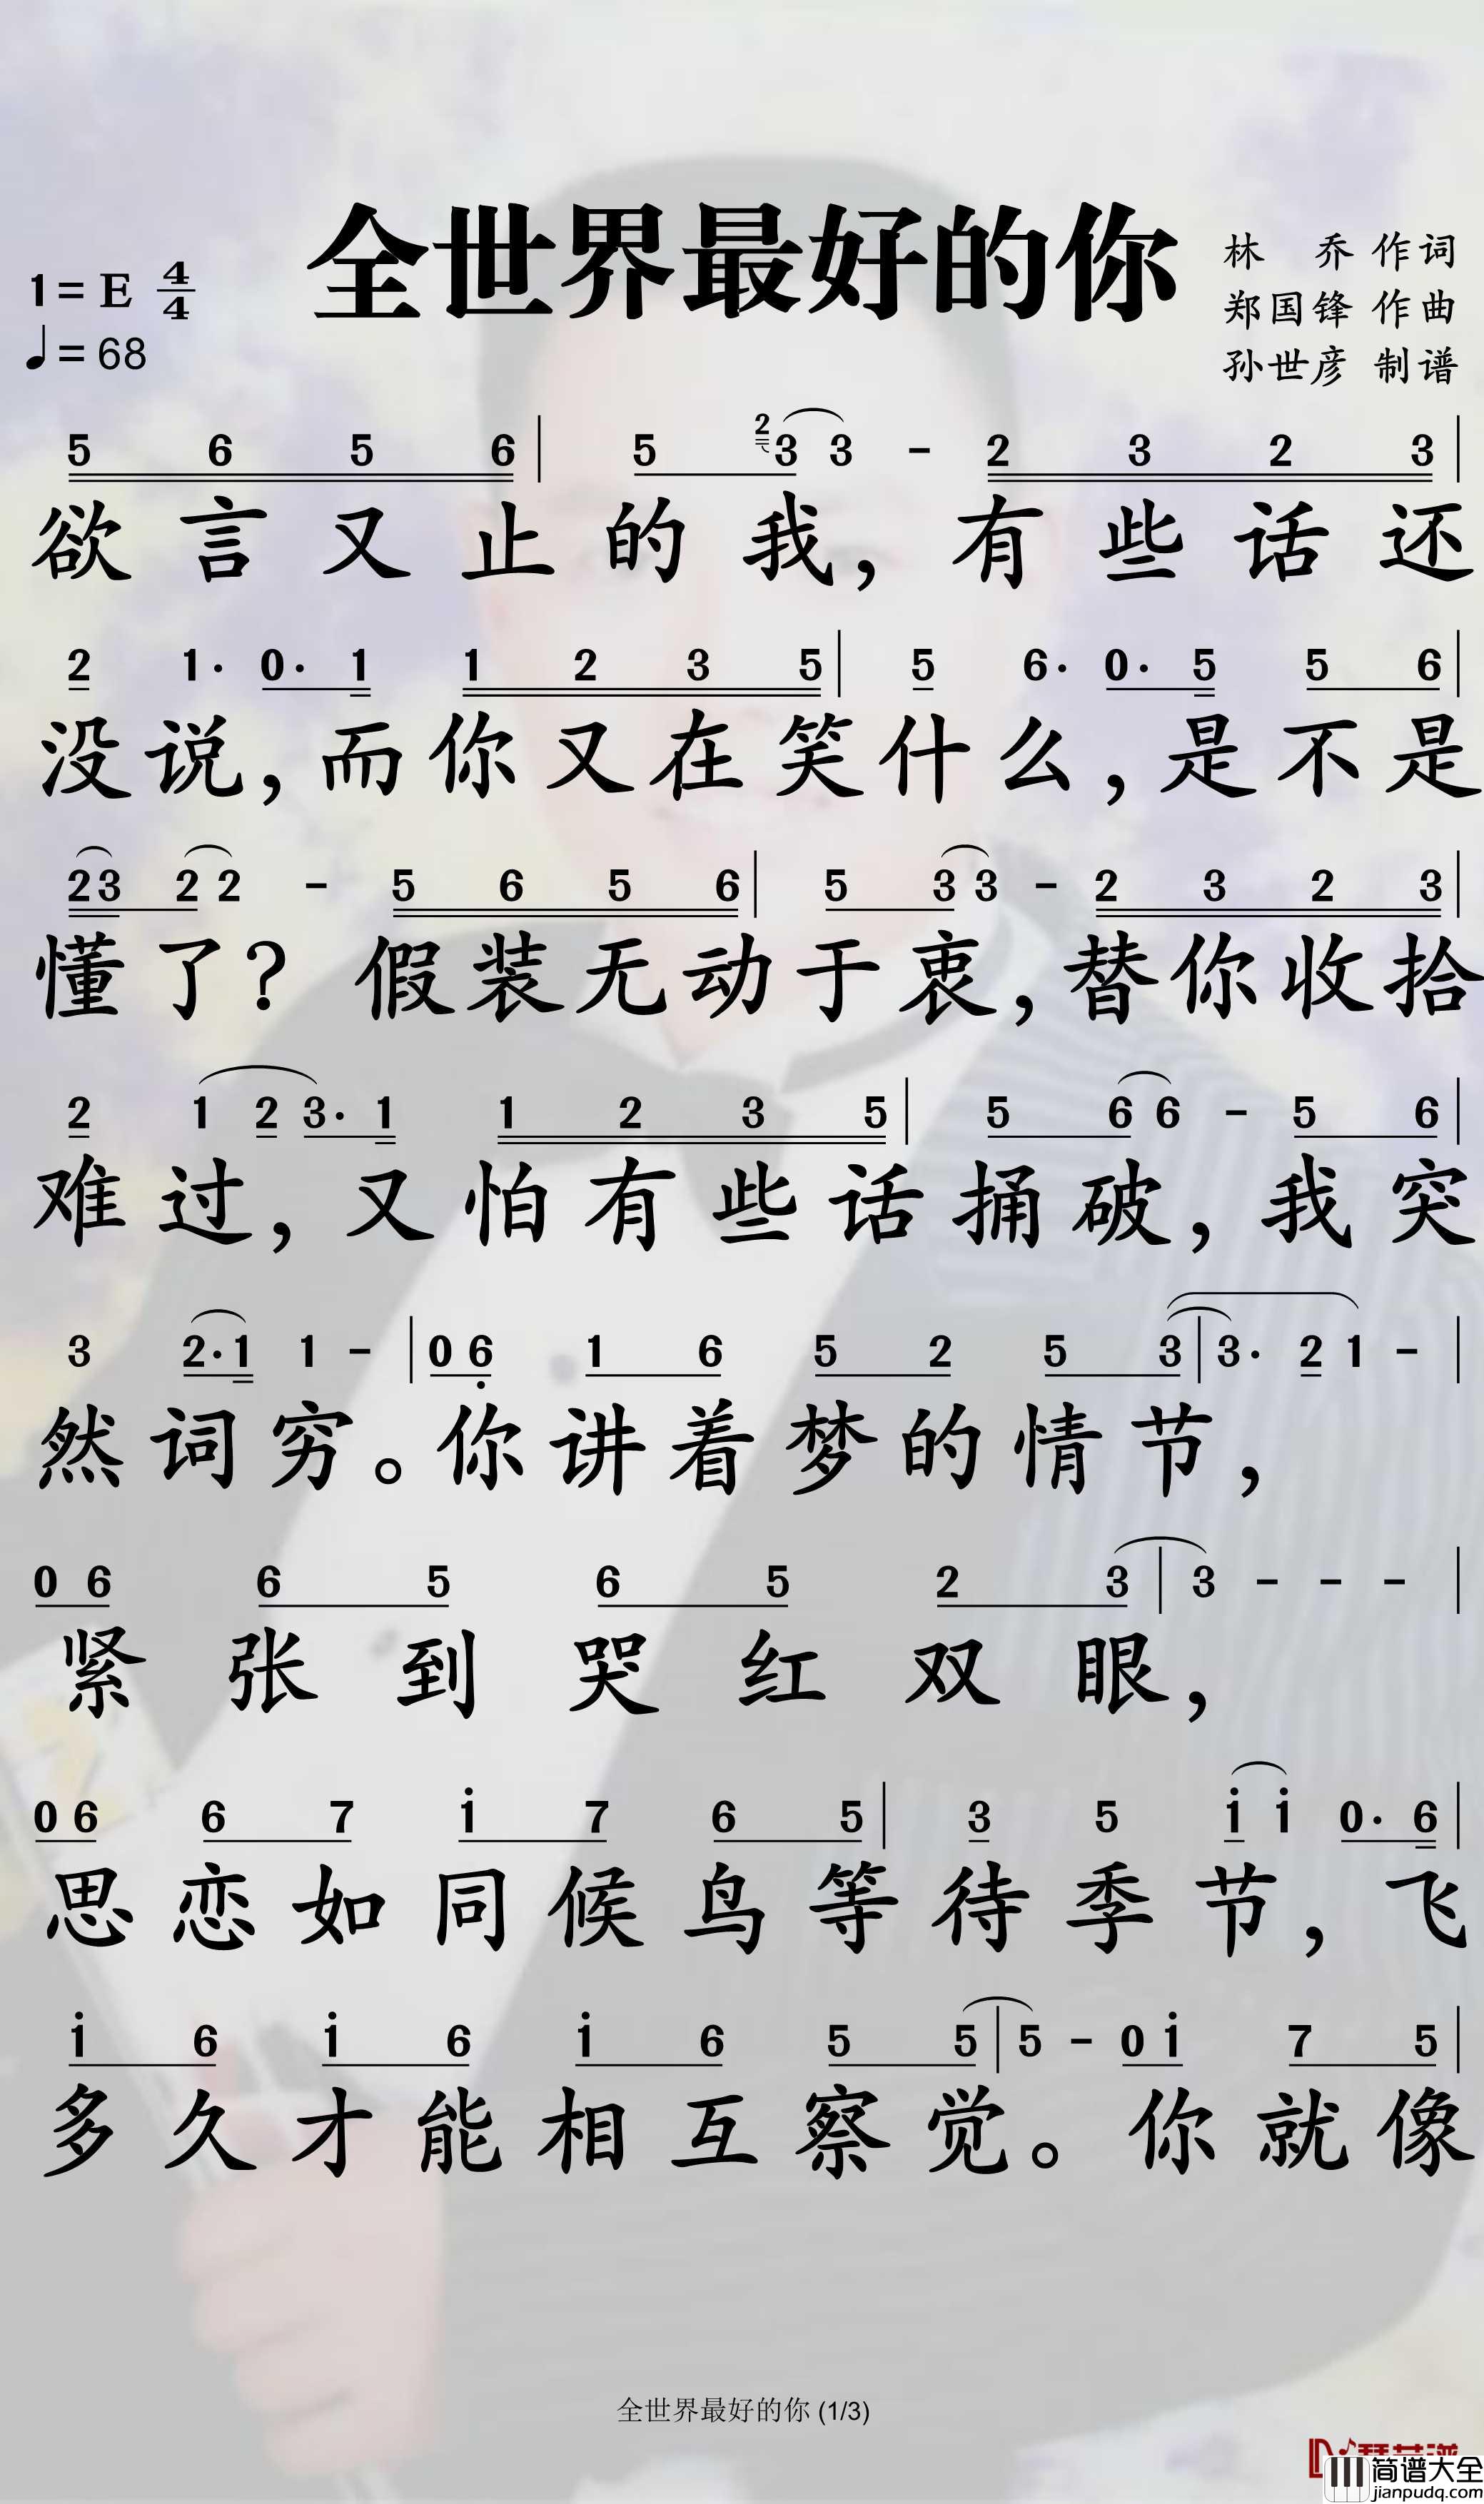 全世界最好的你
1=E 4/4
♩=68
林 乔 作词
郑国锋 作曲
孙世彦 制谱
5 6 5 6 | 5 2 3 3 - 2 3 2 3 |
欲言又止的我，有些话还
2 1· 0· 1 1 2 3 5 | 5 6· 0· 5 5 6 |
没说，而你又在笑什么，是不是
2 3 2 2 - 5 6 5 6 | 5 3 3 - 2 3 2 3 |
懂了？假装无动于衷，替你收拾
2 1 2 3· 1 1 2 3 5 | 5 6 6 - 5 6 |
难过，又怕有些话捅破，我突
3 2· 1 1 - | 0 6̣ 1 6 5 2 5 3 | 3· 2 1 - |
然词穷。你讲着梦的情节，
0 6 6 5 6 5 2 3 | 3 - - - |
紧张到哭红双眼，
0 6 6 7 1̇ 7 6 5 | 3 5 1̇ 1̇ 0· 6 |
思恋如同候鸟等待季节，飞
1̇ 6 1̇ 6 1̇ 6 5 5 | 5 - 0 1̇ 7 5 |
多久才能相互察觉。你就像
全世界最好的你 (1/3)
简谱大全
jianpudq.com